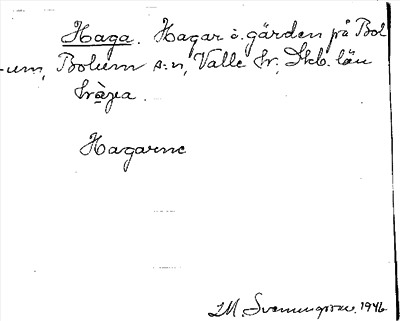 Haga. Hagar å gården på Bol
-um, Bolum s:n, Valle hr; Skb. län
Hagarne
1946